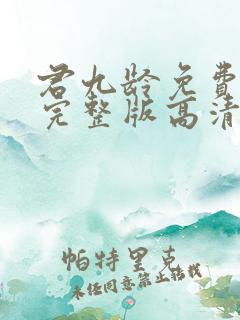 君九龄免費
完整版高清
帕特里克
未经同意禁止转载